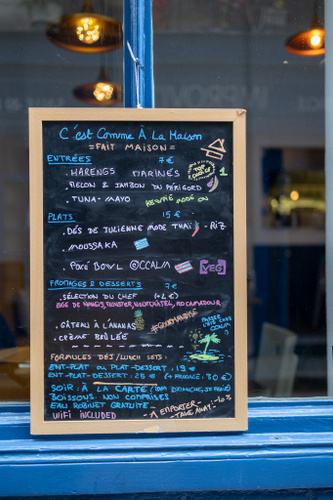 C'est Comme À La Maison
= FAIT MAISON =
ENTRÉES 7€
. HARENGS MARINÉS
TOP
1
. MELON & JAMBON DU PÉRIGORD
. TUNA-MAYO
PLATS 15 €
. DÉS DE JULIENNE MODE THAÏ - RIZ
. MOUSSAKA
. POKÉ BOWL @CCALM
VEG
FROMAGES & DESSERTS 7€
. SÉLECTION DU CHEF (+2 €)
. GÂTEAU À L'ANANAS
#GOURMANDISE
. CRÈME BRÛLÉE
FORMULES DÉJ/LUNCH SETS:
ENT-PLAT OU PLAT-DESSERT: 19 €
ENT-PLAT-DESSERT: 25 €
SOIR: À LA CARTE
BOISSONS NON COMPRISES
EAU ROBINET GRATUITE
WIFI INCLUDED
- À EMPORTER
- TAKE AWAY